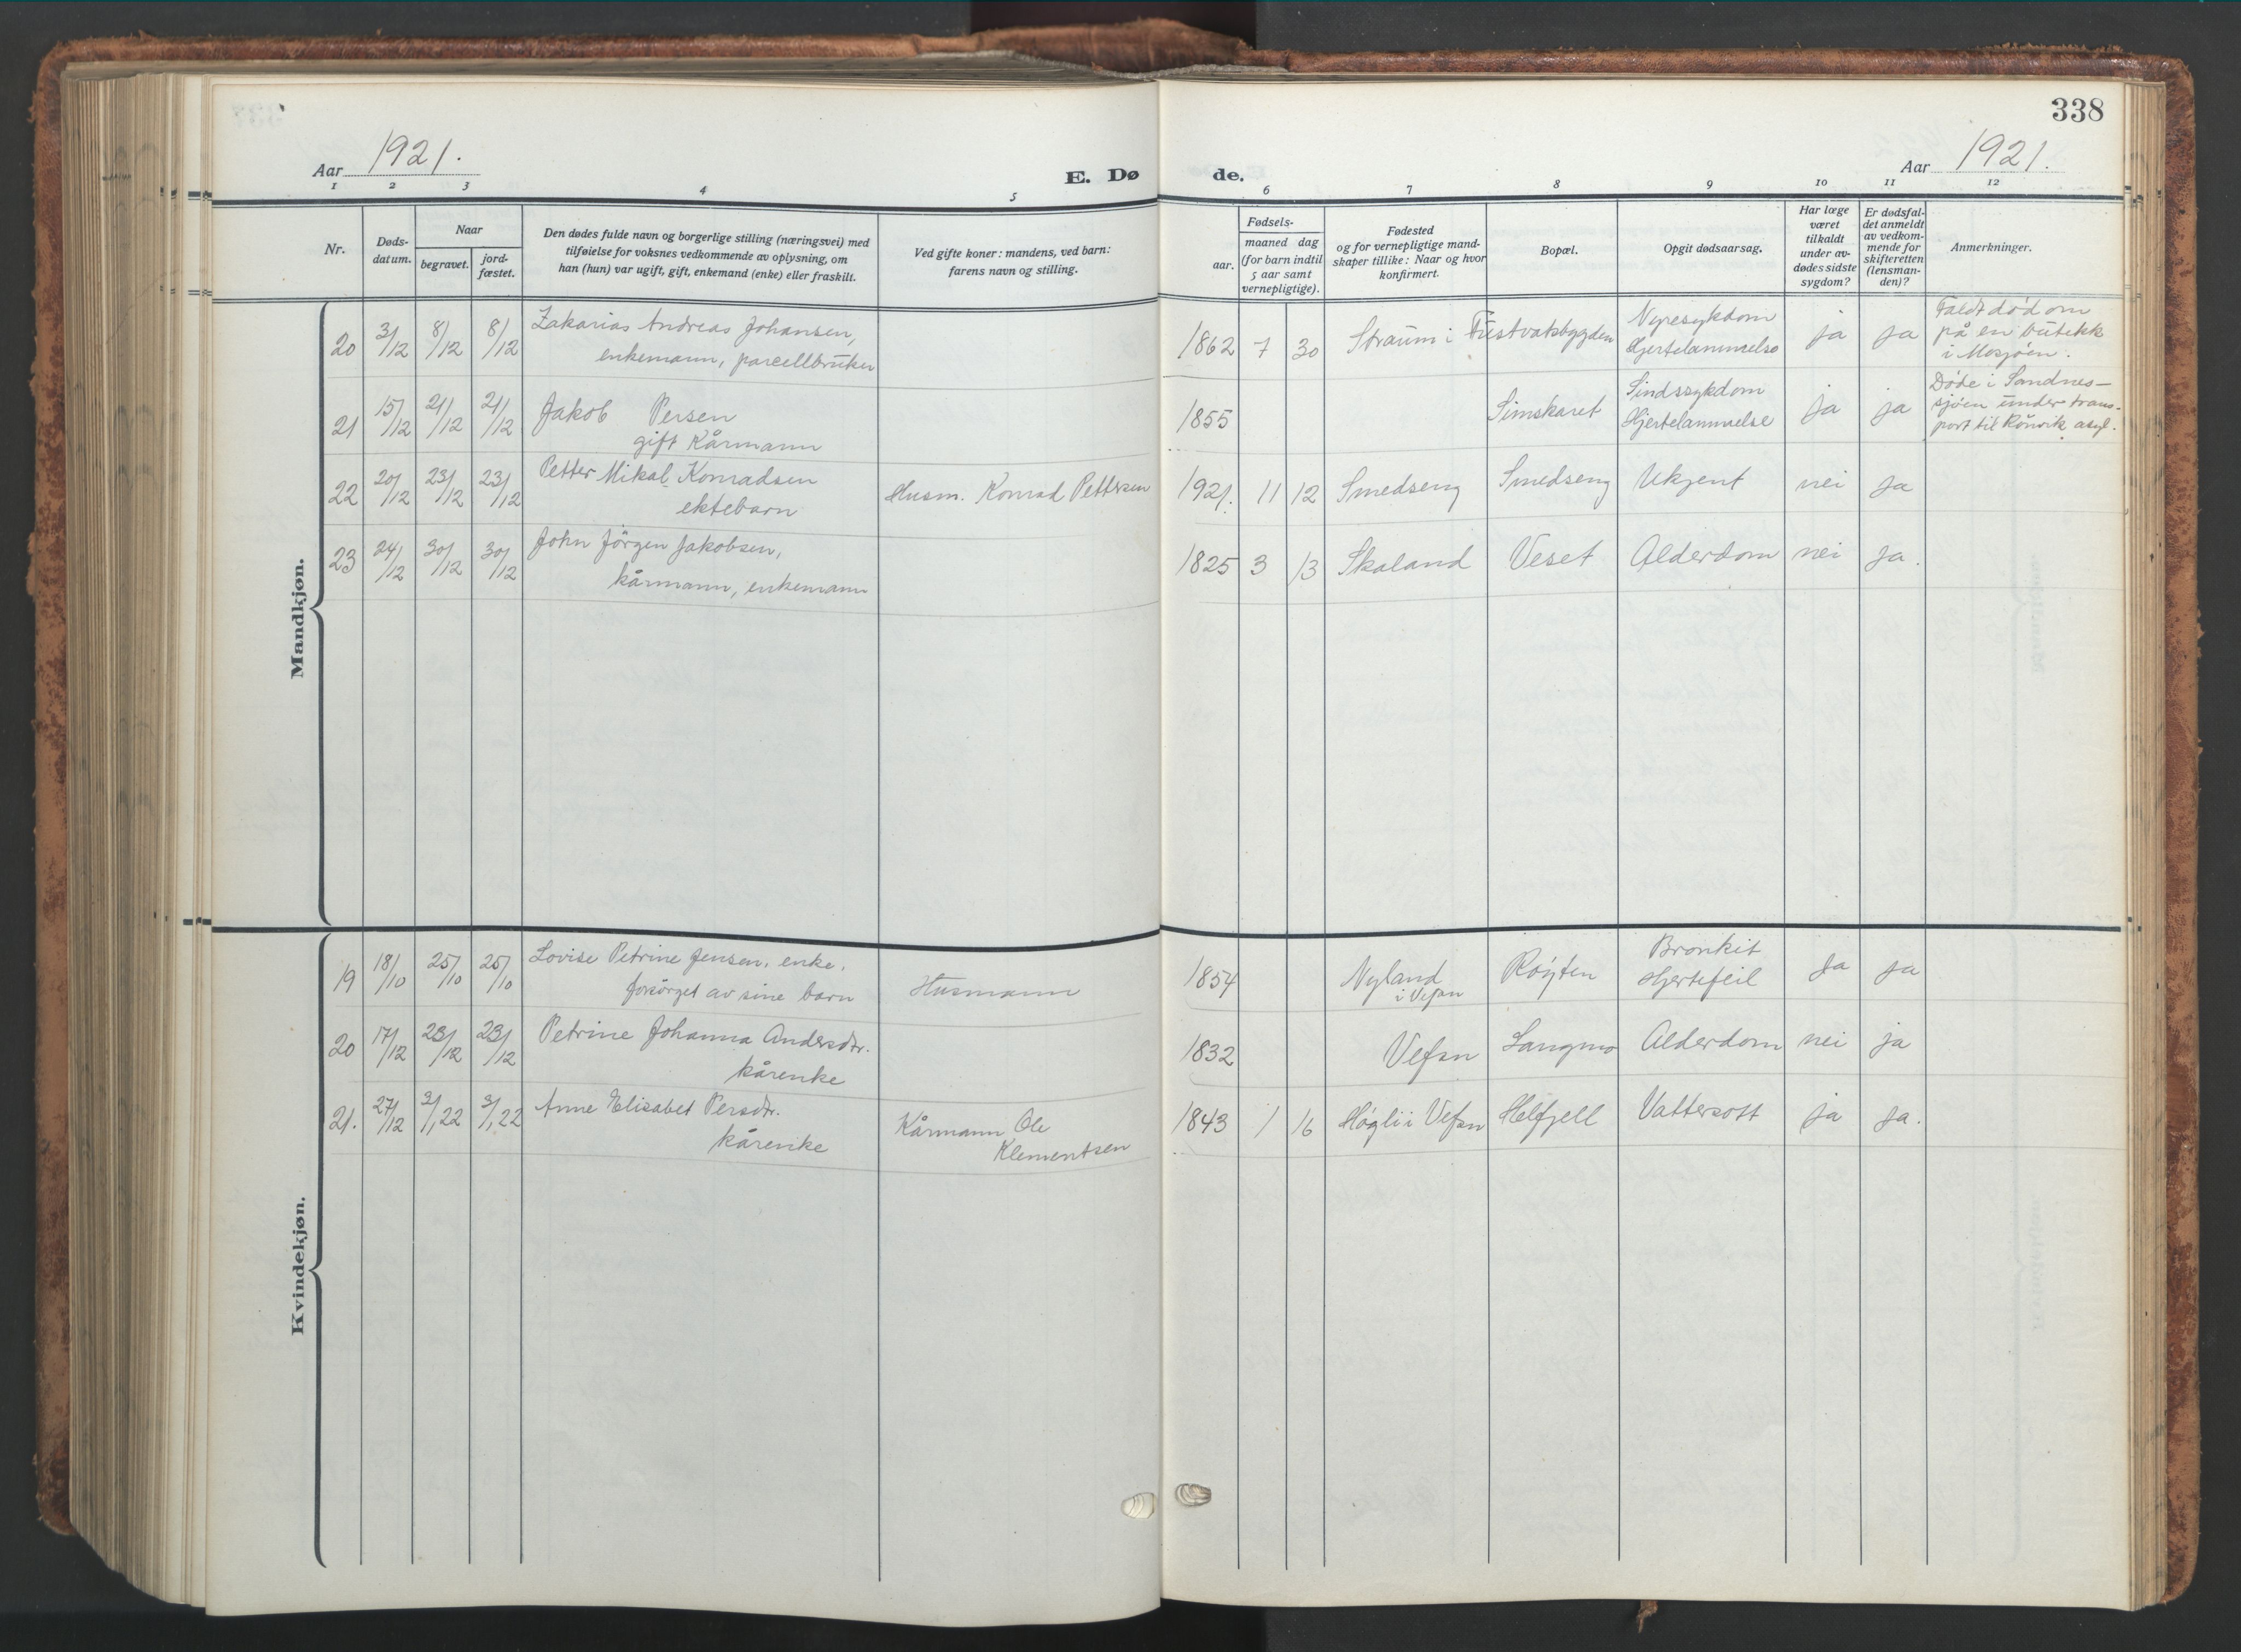 338
Aar 1921.
E. Dø de.
Aar 1921.
1 2 3 4 5 6 7 8 9 10 11 12
Nr.
Døds-
datum.
Naar
begravet.
jord-
fæstet.
Den dødes fulde navn og borgerlige stilling (næringsvei) med
tilføielse for voksnes vedkommende av oplysning, om
han (hun) var ugift, gift, enkemand (enke) eller fraskilt.
Ved gifte koner: mandens, ved barn:
farens navn og stilling.
Fødsels-
aar.
maaned dag
(for barn indtil
5 aar samt
vernepligtige).
Fødested
og for vernepligtige mand-
skaper tillike: Naar og hvor
konfirmert.
Bopæl.
Opgit dødsaarsag.
Har læge
været
tilkaldt
under av-
dødes sidste
sygdom?
Er dødsfal-
det anmeldt
av vedkom-
mende for
skifteretten
(lensman-
den)?
Anmerkninger.
Mandkjøn.
20 3/12 8/12 8/12 Zakarias Andreas Johansen,
enkemann, parcellbruker
1862 7 30 Straum i Fustvatsbygden
Nyresykdom
Hjertelammelse
ja ja
Faldt død om
på en butekk
i Mosjøen.
21 15/12 21/12 21/12 Jakob Persen
gift Kårmann
1855 Simskaret
Sindssykdom
Hjertelammelse
ja ja
Døde i Sandnes-
sjøen under trans-
port til Rönvik asyl.
22 20/12 23/12 23/12 Petter Mikal Konradsen
ektebarn
Husm. Konrad Pettersen
1921. 11 12 Smedseng Smedseng Ukjent nei ja
23 24/12 30/12 30/12 John Jörgen Jakobsen,
kårmann, enkemann
1825 3 13 Skaland Veset Alderdom nei ja.
Kvindekjøn.
19 18/10 25/10 25/10 Lovise Petrine Jensen, enke,
forsörget av sine barn
Husmann
1854 Nyland
i Vefsn
Röyten
Bronkit
Hjertefeil
ja ja
20 17/12 23/12 23/12 Petrine Johanna Andersdtr.
kårenke
1832 Vefsn Langmo Alderdom nei ja
21. 27/12 3/1,22 3/1,22 Anne Elisabet Persdtr.
kårenke
Kårmann Ole
Klementsen
1843 1 16 Høgli i Vefsn Helfjell Vattersott ja ja.